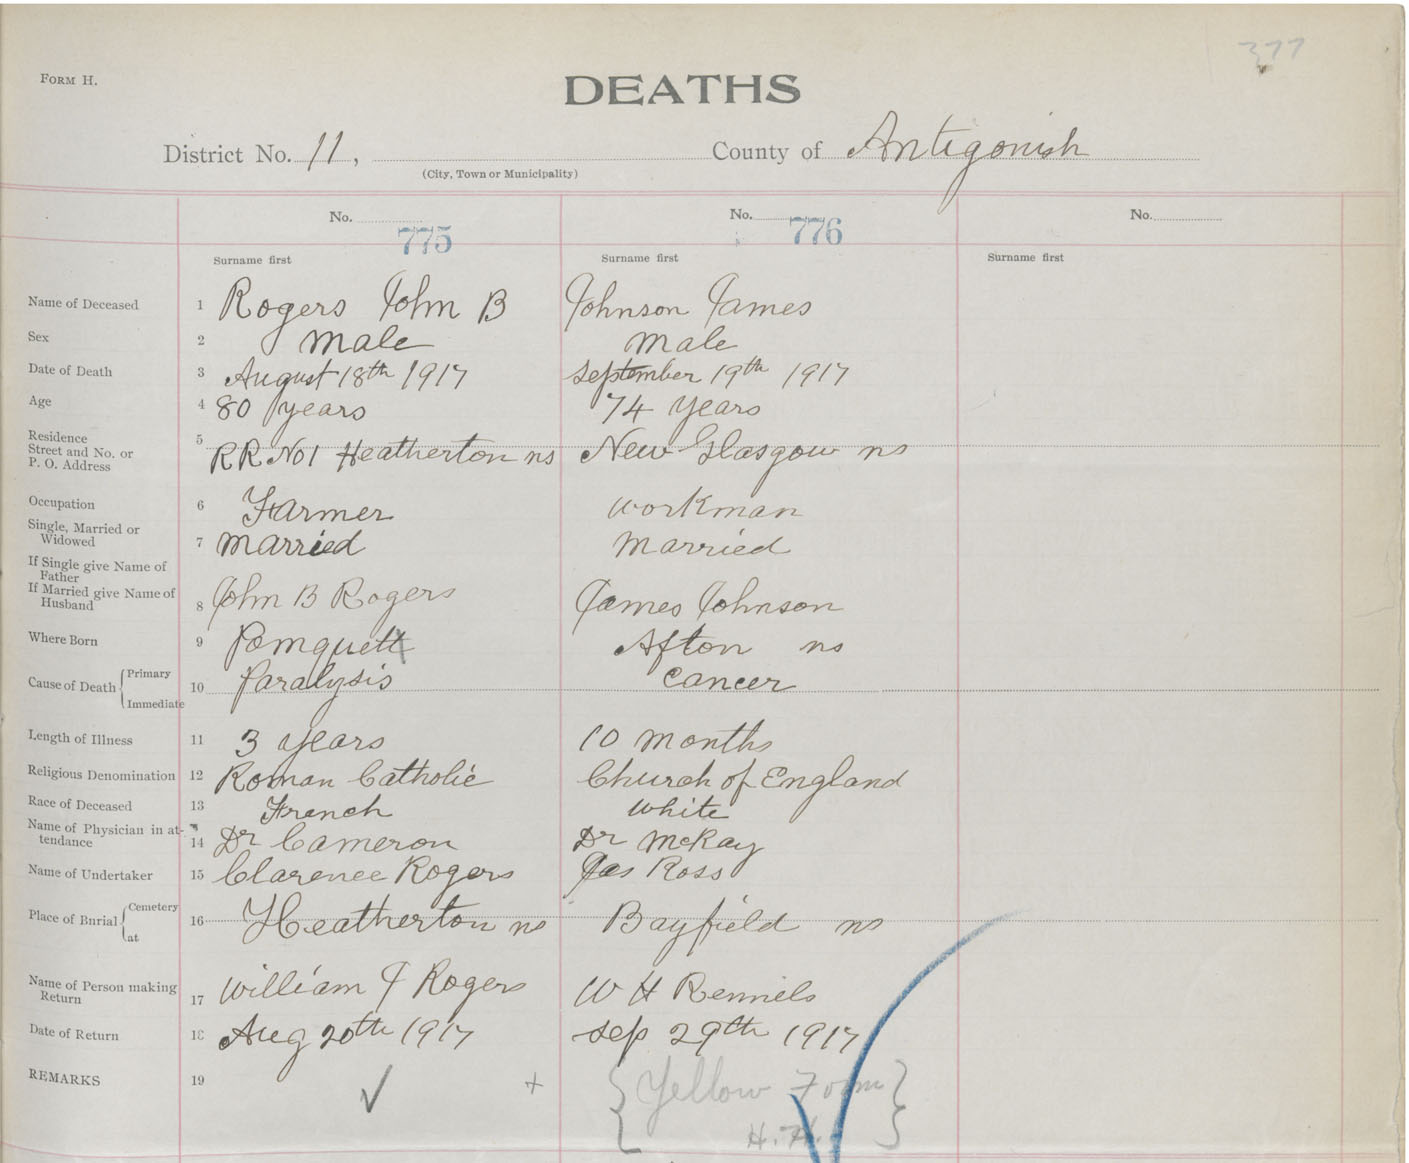 377
FORM H.
DEATHS
District No. 11, County of Antigonish
(City, Town or Municipality)
No. 775 No. 776 No.
Surname first Surname first Surname first
Name of Deceased 1 Rogers John B Johnson James
Sex 2 male male
Date of Death 3 August 18th 1917 September 19th 1917
Age 4 80 years 74 years
Residence 5
Street and No. or
P. O. Address RR No 1 Heatherton ns New Glasgow ns
Occupation 6 Farmer workman
Single, Married or
Widowed 7 married married
If Single give Name of
Father
If Married give Name of
Husband 8 John B Rogers James Johnson
Where Born 9 Pomquett Afton ns
Cause of Death { Primary
Immediate 10 Paralysis cancer
Length of Illness 11 3 years 10 months
Religious Denomination 12 Roman Catholic Church of England
Race of Deceased 13 French white
Name of Physician in at-
tendance 14 Dr Cameron Dr McKay
Name of Undertaker 15 Clarence Rogers Jas Ross
Place of Burial { Cemetery
at 16 Heatherton ns Bayfield ns
Name of Person making
Return 17 William J Rogers W H Rennels
Date of Return 18 Aug 20th 1917 Sep 29th 1917
REMARKS 19 ✓ + { Yellow Form }
H.H.